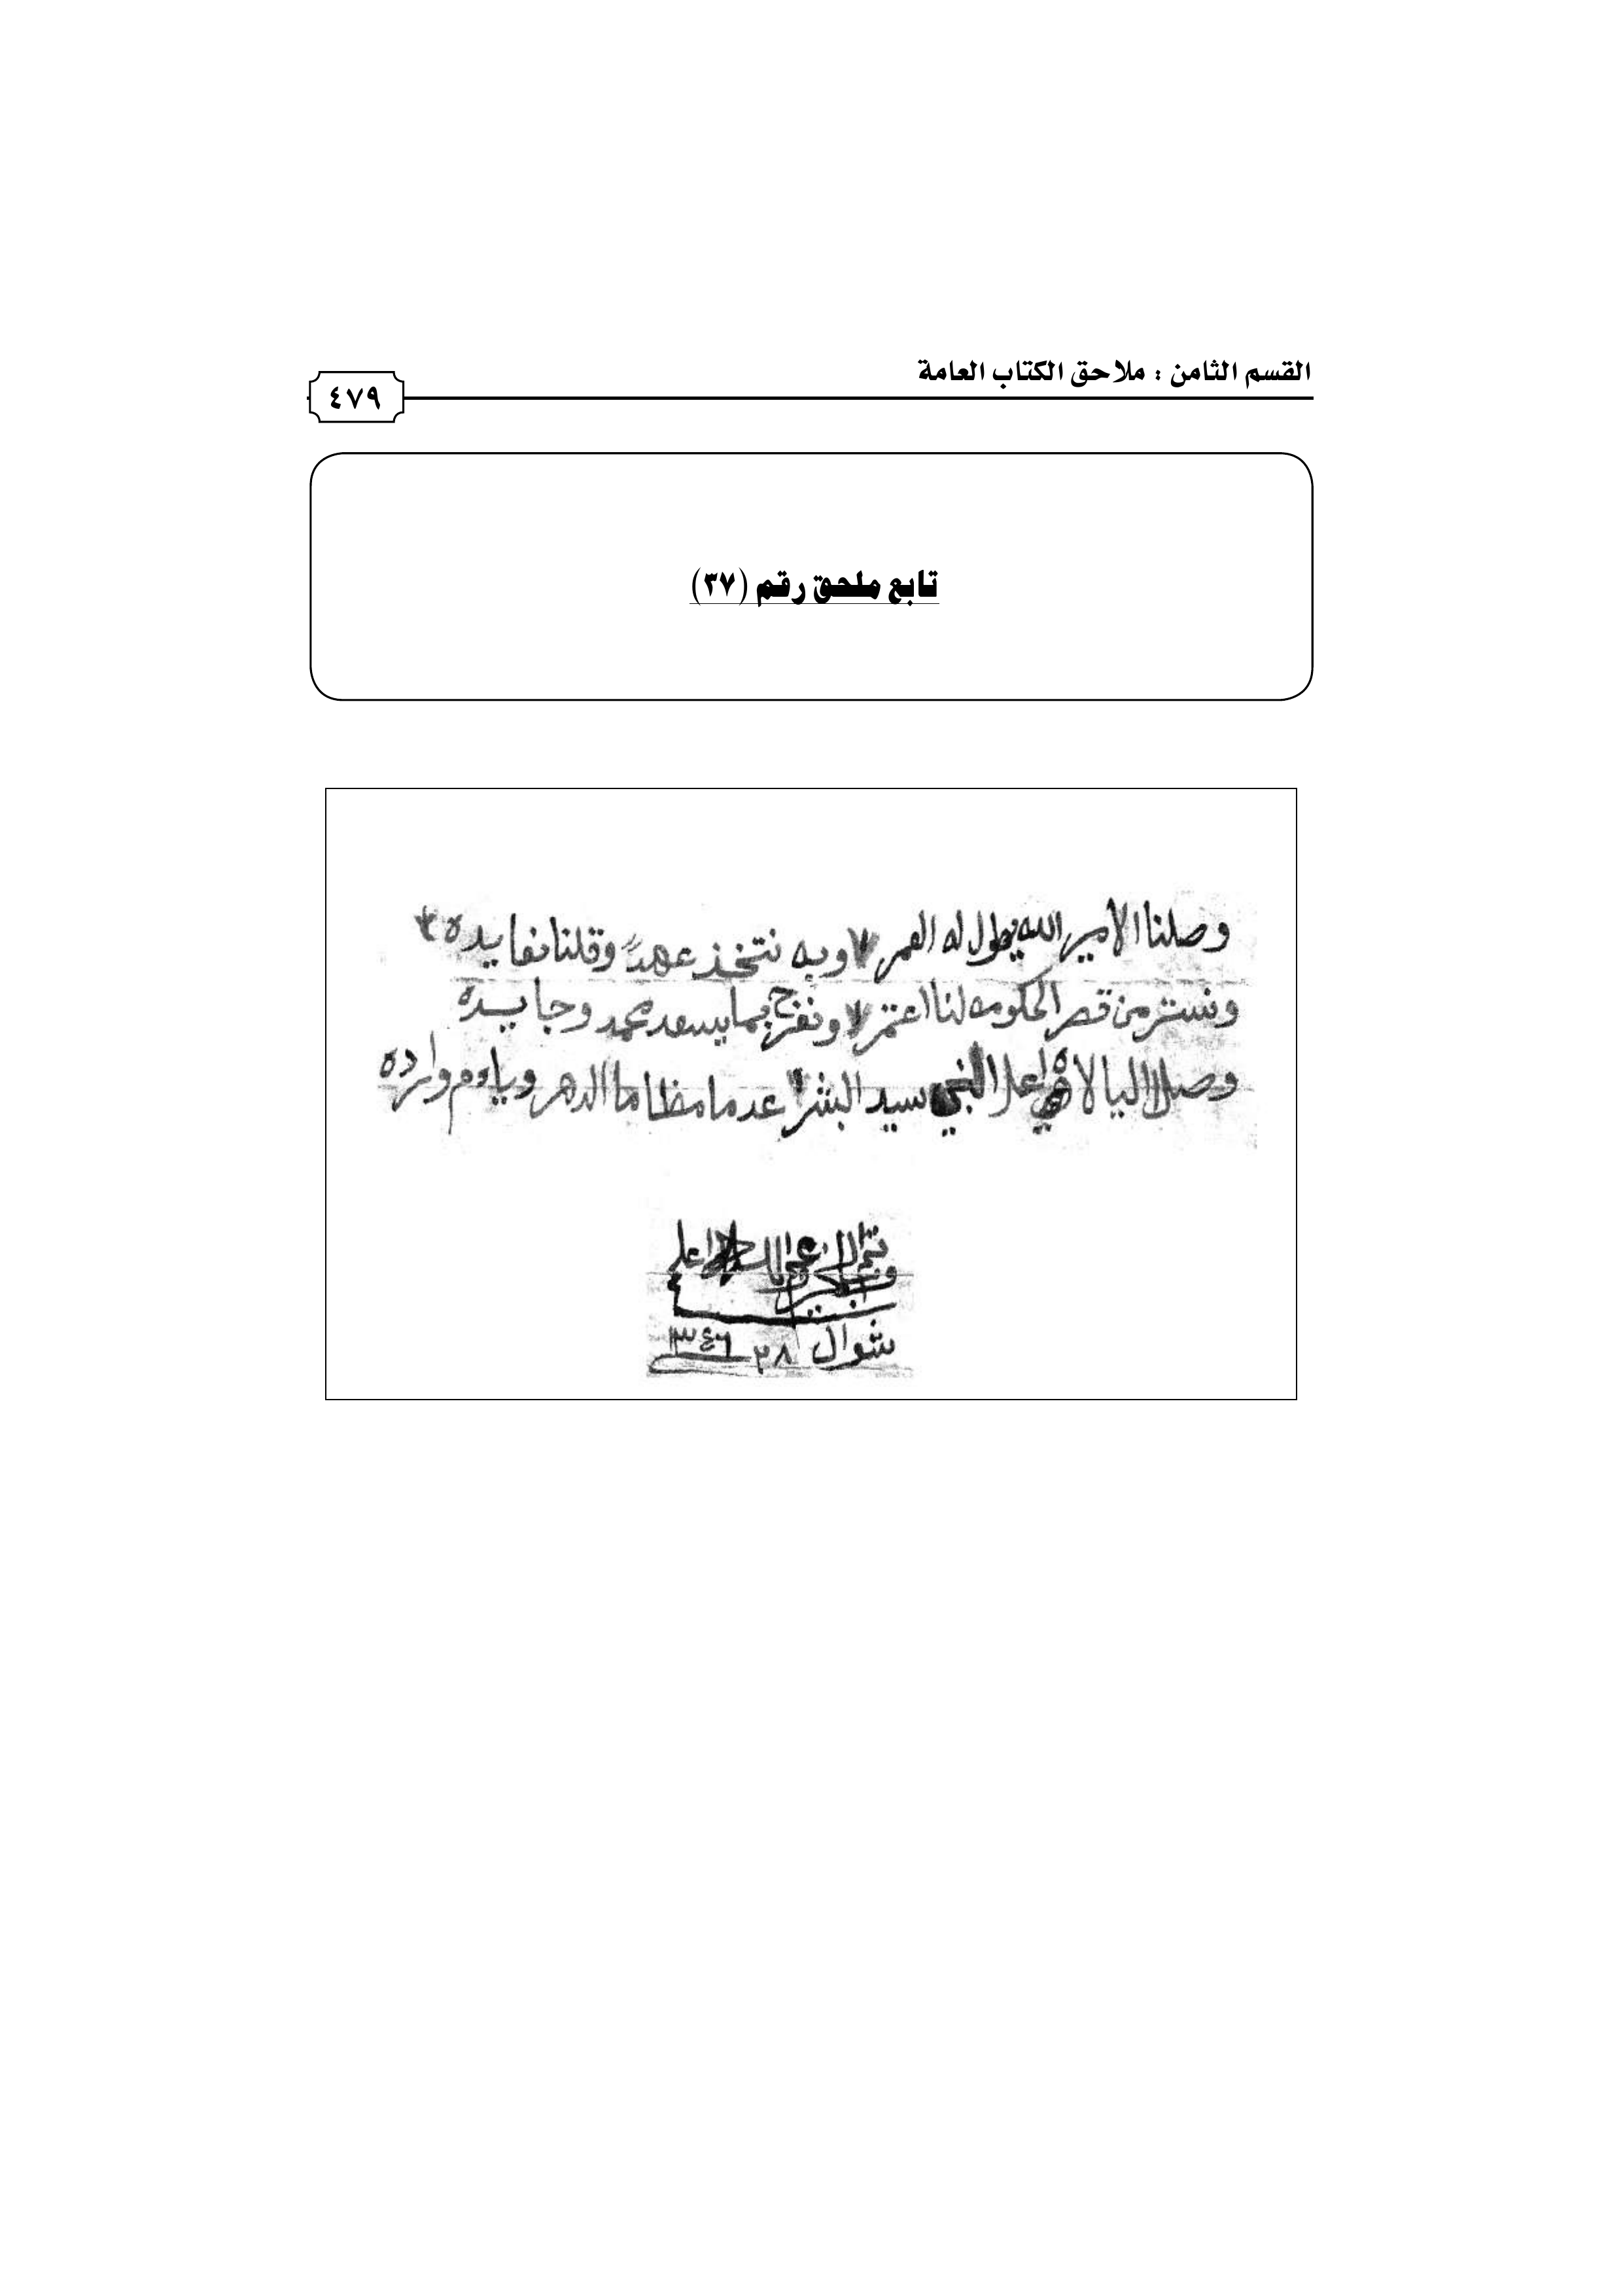 القسم الثامن : ملاحق الكتاب العامة
٤٧٩
تابع ملحق رقم (٣٧)
وصلنا الامير الله يطول له العمر وبه نتخذ عهد وقلنا نفايده
ونستر من قصر الحكومه لنا اعتمر ونفرح بما يسعد محمد وجايده
وصل اليا لاهي على النبي سيد البشر عدما مظا ما الدهر
شوال ٢٨ ٣٤٦